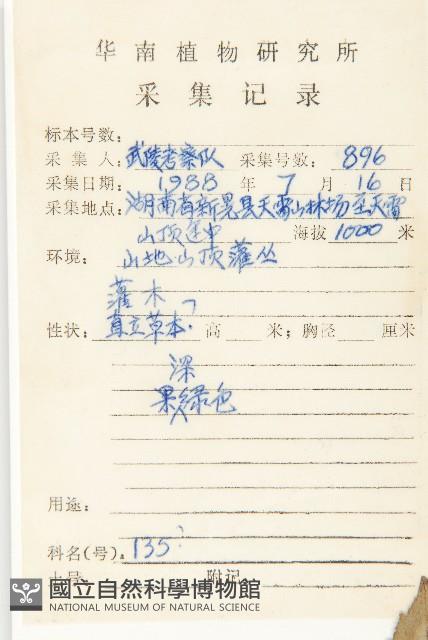 华南植物研究所
采集记录
标本号数:
采集人:武陵考察队 采集号数: 896
采集日期: 1988 年 7 月 16 日
采集地点:湖南省新晃县天雷山林场至天雷
山顶途中 海拔 1000 米
环境: 山地山顶灌丛
灌木
性状: 直立草本. 高 米; 胸径 厘米
深
果绿色
用途:
科名(号): 135?
附记
國立自然科學博物館
NATIONAL MUSEUM OF NATURAL SCIENCE